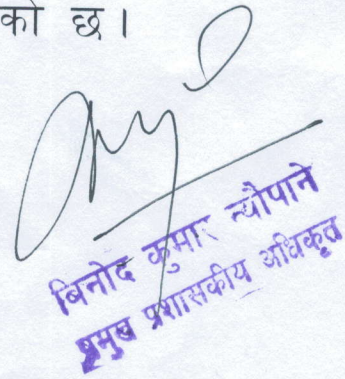 को छ ।
बिनोद कुमार न्यौपाने
प्रमुख प्रशासकीय अधिकृत